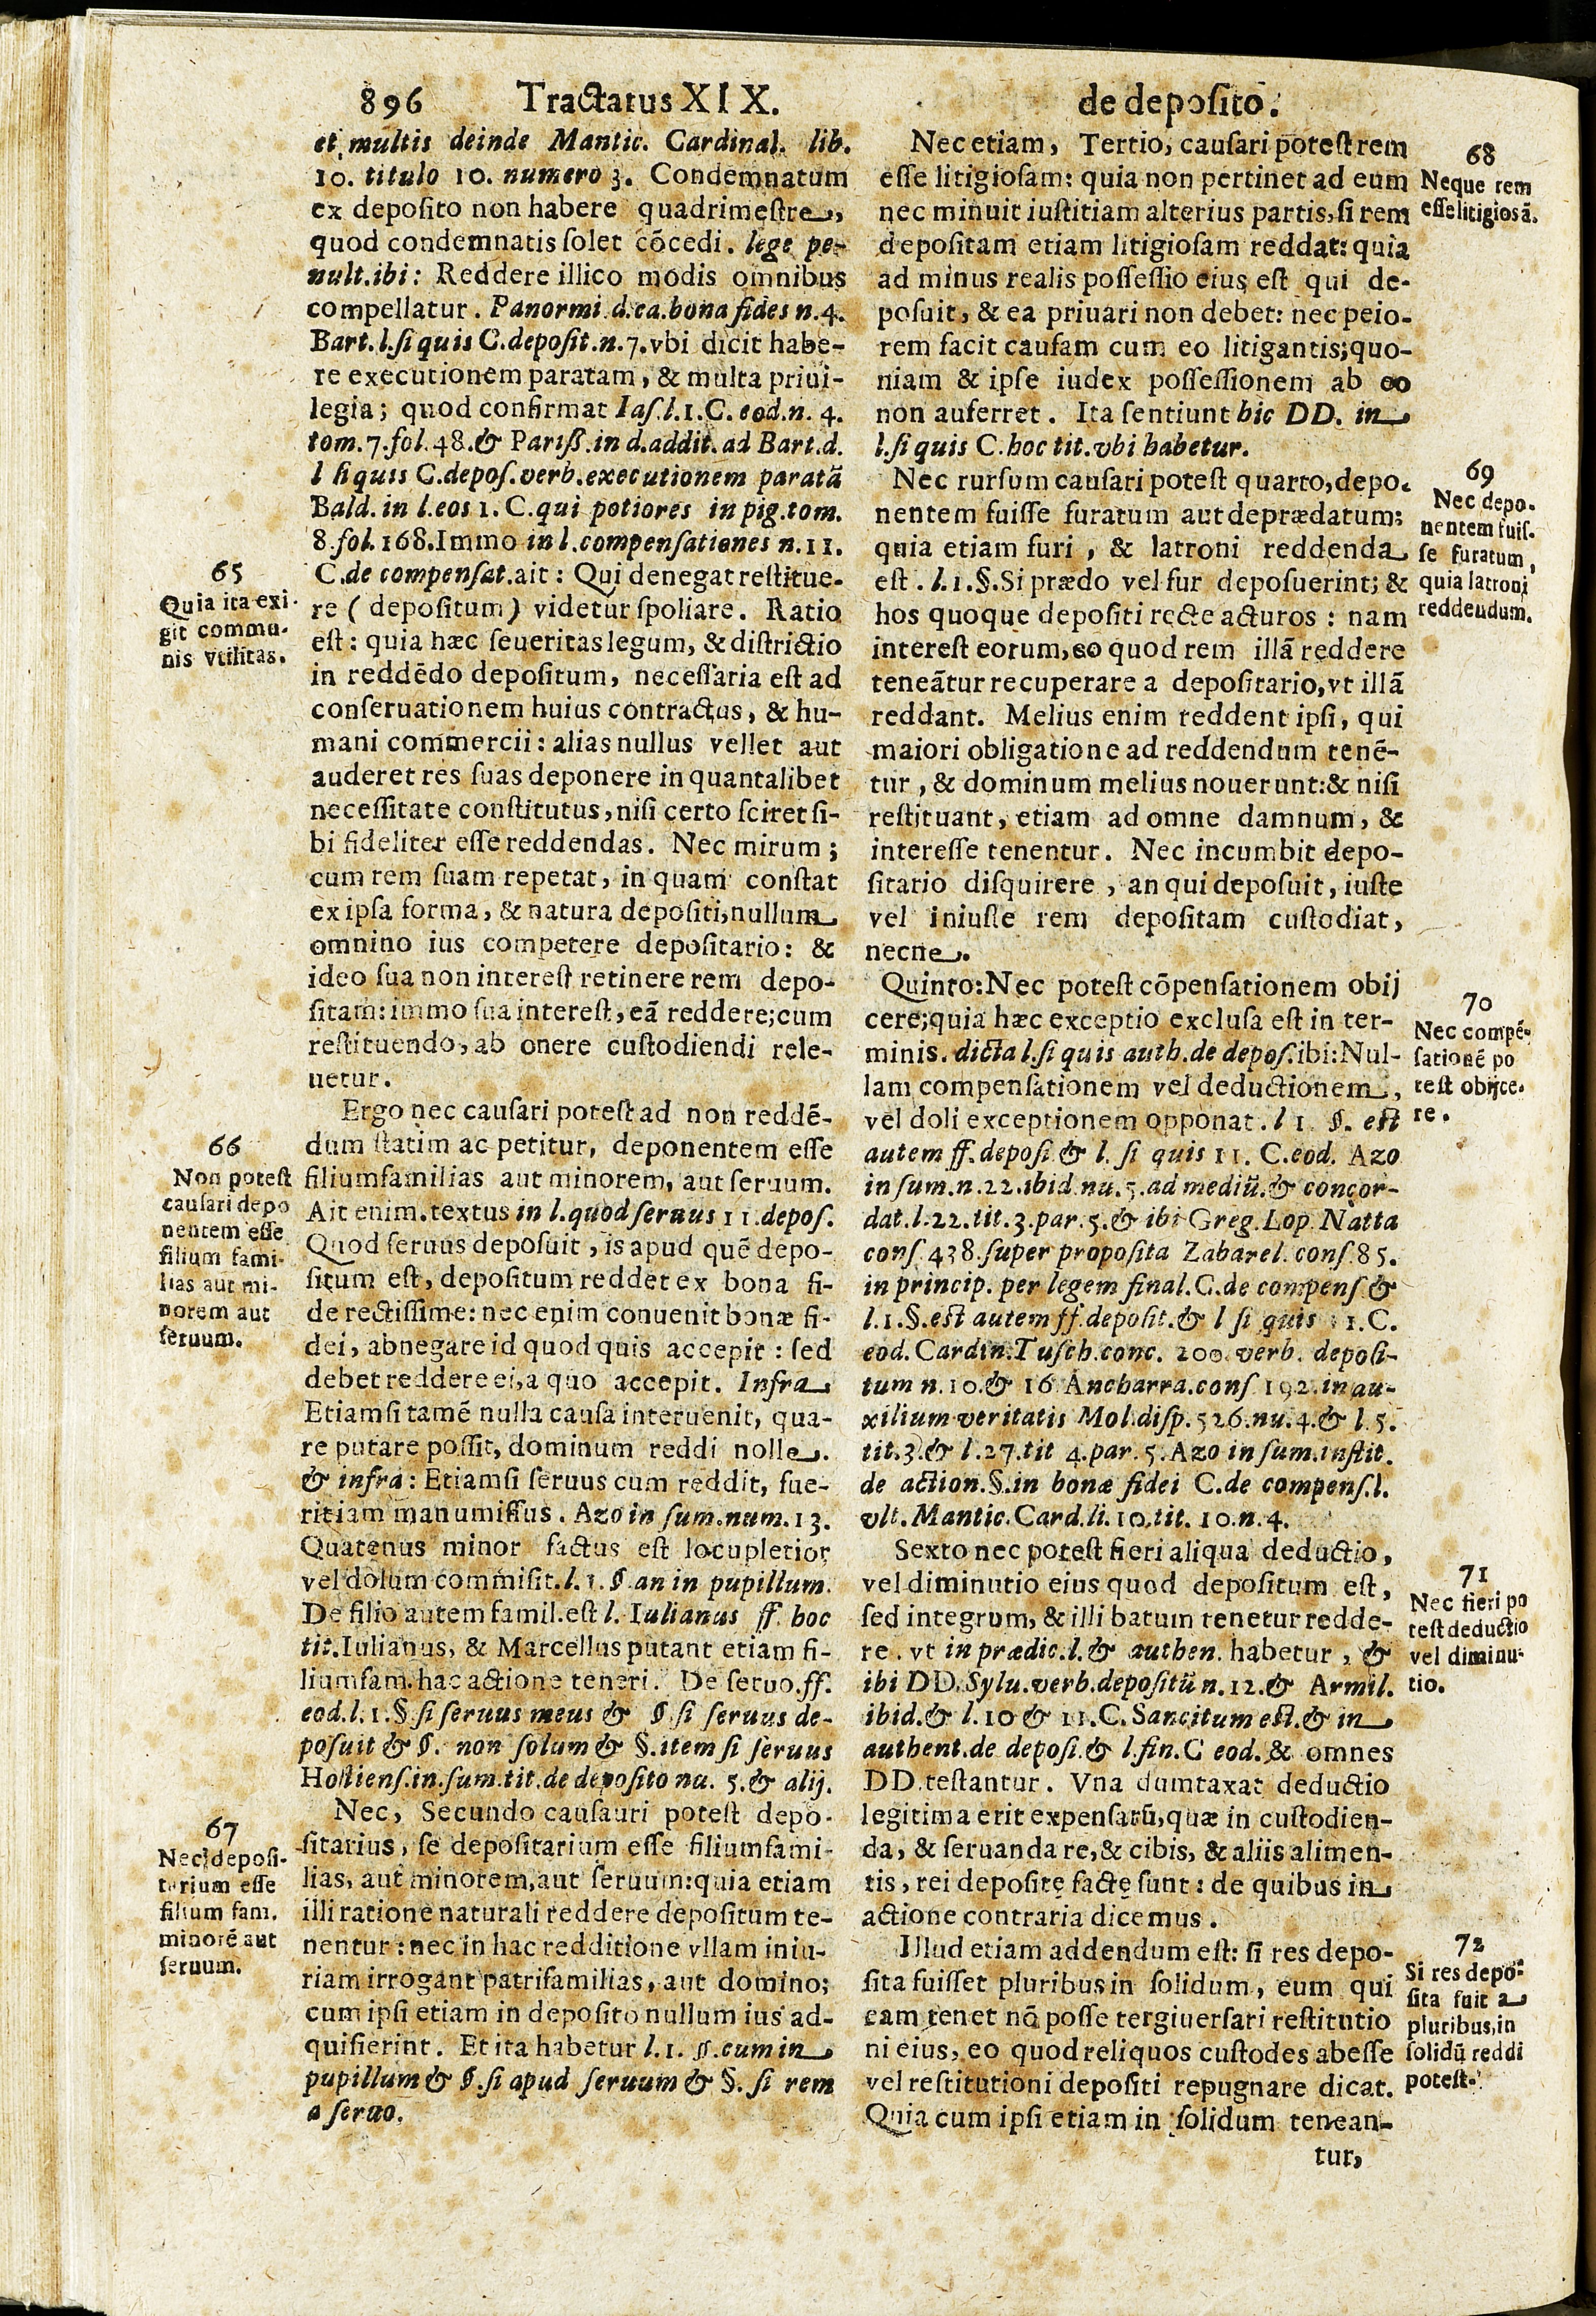 896 Tractatus XIX. de deposito.
et multis deinde Mantic. Cardinal. lib.
10. titulo 10. numero 3. Condemnatum
ex deposito non habere quadrimestre,
quod condemnatis solet cōcedi. lege pe-
nult.ibi: Reddere illico modis omnibus
compellatur. Panormi.d.ca.bona fides n.4.
Bart.l.si quis C.deposit.n.7.vbi dicit habe-
re executionem paratam, & multa priui-
legia; quod confirmat Ias.l.1.C. eod.n. 4.
tom.7.fol.48.& Pariß.in d.addit.ad Bart.d.
l si quis C.depos.verb.executionem paratã
Bald. in l.eos 1. C.qui potiores in pig.tom.
8.fol.168.Immo in l.compensationes n.11.
C.de compensat.ait: Qui denegat restitue-
re ( depositum ) videtur spoliare. Ratio
est: quia hæc seueritas legum, & districtio
in reddēdo depositum, necessaria est ad
conseruationem huius contractus, & hu-
mani commercii: alias nullus vellet aut
auderet res suas deponere in quantalibet
necessitate constitutus, nisi certo sciret si-
bi fideliter esse reddendas. Nec mirum;
cum rem suam repetat, in quam constat
ex ipsa forma, & natura depositi, nullum
omnino ius competere depositario: &
ideo sua non interest retinere rem depo-
sitam: immo sua interest, eã reddere; cum
restituendo, ab onere custodiendi rele-
uetur.
Ergo nec causari potest ad non reddē-
dum statim ac petitur, deponentem esse
filiumfamilias aut minorem, aut seruum.
Ait enim.textus in l.quod seruus 11.depos.
Quod seruus deposuit, is apud quē depo-
situm est, depositum reddet ex bona fi-
de rectissime: nec enim conuenit bonæ fi-
dei, abnegare id quod quis accepit: sed
debet reddere ei, a quo accepit. Infra
Etiamsi tamē nulla causa interuenit, qua-
re putare possit, dominum reddi nolle.
& infra: Etiamsi seruus cum reddit, fue-
rit iam manumissus. Azo in sum.num.13.
Quatenus minor factus est locupletior
vel dolum commisit.l.1.§ an in pupillum.
De filio autem famil.est l. Iulianus ff. hoc
tit.Iulianus, & Marcellus putant etiam fi-
liumfam.hac actione teneri. De seruo.ff.
eod.l.1.§.si seruus meus & §.si seruus de-
posuit & §. non solum & §.item si seruus
Hostiens.in.sum.tit.de deposito nu. 5.& alij.
Nec, Secundo causauri potest depo-
sitarius, se depositarium esse filiumfami-
lias, aut minorem, aut seruum: quia etiam
illi ratione naturali reddere depositum te-
nentur: nec in hac redditione vllam iniu-
riam irrogant patrifamilias, aut domino;
cum ipsi etiam in deposito nullum ius ad-
quisierint. Et ita habetur l.1. §.cum in
pupillum & §.si apud seruum & §. si rem
a seruo.
65
Quia ita exi-
git commu-
nis vtilitas.
66
Non potest
causari depo
nentem esse
filium fami-
lias aut mi-
norem aut
seruum.
67
Nec deposi-
tarium esse
filium fam.
minorē aut
seruum.
Nec etiam, Tertio, causari potest rem
esse litigiosam: quia non pertinet ad eum
nec minuit iustitiam alterius partis, si rem
depositam etiam litigiosam reddat: quia
ad minus realis possessio eius est qui de-
posuit, & ea priuari non debet: nec peio-
rem facit causam cum eo litigantis; quo-
niam & ipse iudex possessionem ab eo
non auferret. Ita sentiunt hic DD. in
l.si quis C.hoc tit.vbi habetur.
Nec rursum causari potest quarto, depo-
nentem fuisse furatum aut deprædatum:
quia etiam furi, & latroni reddenda
est. l.1.§.Si prædo vel fur deposuerint; &
hos quoque depositi recte acturos: nam
interest eorum, eo quod rem illã reddere
teneãtur recuperare a depositario, vt illã
reddant. Melius enim reddent ipsi, qui
maiori obligatione ad reddendum tenē-
tur, & dominum melius nouerunt: & nisi
restituant, etiam ad omne damnum, &
interesse tenentur. Nec incumbit depo-
sitario disquirere, an qui deposuit, iuste
vel iniuste rem depositam custodiat,
necne.
Quinto: Nec potest cōpensationem obij
cere; quia hæc exceptio exclusa est in ter-
minis. dicta l.si quis auth.de depos.ibi: Nul-
lam compensationem vel deductionem,
vel doli exceptionem opponat. l 1. §. est
autem ff.deposi.& l. si quis 11. C.eod. Azo
in sum.n.22.ibid.nu.5.ad mediũ.& concor-
dat.l.22.tit.3.par.5.& ibi Greg.Lop. Natta
cons.438.super proposita Zabarel.cons.85.
in princip. per legem final.C.de compens.&
l.1.§.est autem ff.deposit.& l si quis 11.C.
eod.Cardin.Tusch.conc. 200.verb. deposi-
tum n.10.& 16 Ancharra.cons 192.in au-
xilium veritatis Mol.disp.526.nu.4.& l.5.
tit.3.& l.27.tit 4.par.5.Azo in sum.instit.
de action.§.in bonæ fidei C.de compens.l.
vlt.Mantic.Card.li.10.tit. 10.n.4.
Sexto nec potest fieri aliqua deductio,
vel diminutio eius quod depositum est,
sed integrum, & illi batum tenetur redde-
re. vt in prædic.l.& authen. habetur, &
ibi DD.Sylu.verb.depositũ n.12.& Armil.
ibid.& l.10 & 11.C.Sancitum est.& in
authent.de deposi.& l.fin.C eod.& omnes
DD.testantur. Vna dumtaxat deductio
legitima erit expensarũ, quæ in custodien-
da, & seruanda re, & cibis, & aliis alimen-
tis, rei deposite̜ facte̜ sunt: de quibus in
actione contraria dicemus.
Illud etiam addendum est: si res depo-
sita fuisset pluribus in solidum, eum qui
eam tenet nō posse tergiuersari restitutio
ni eius, eo quod reliquos custodes abesse
vel restitutioni depositi repugnare dicat.
Quia cum ipsi etiam in solidum tenean-
tur,
68
Neque rem
esse litigiosã.
69
Nec depo-
nentem fuis-
se furatum,
quia latroni
reddendum.
70
Nec compē-
sationē po
test obijce-
re.
71
Nec fieri po
test deductio
vel diminu-
tio.
72
Si res depo-
sita fuit a
pluribus, in
solidũ reddi
potest.